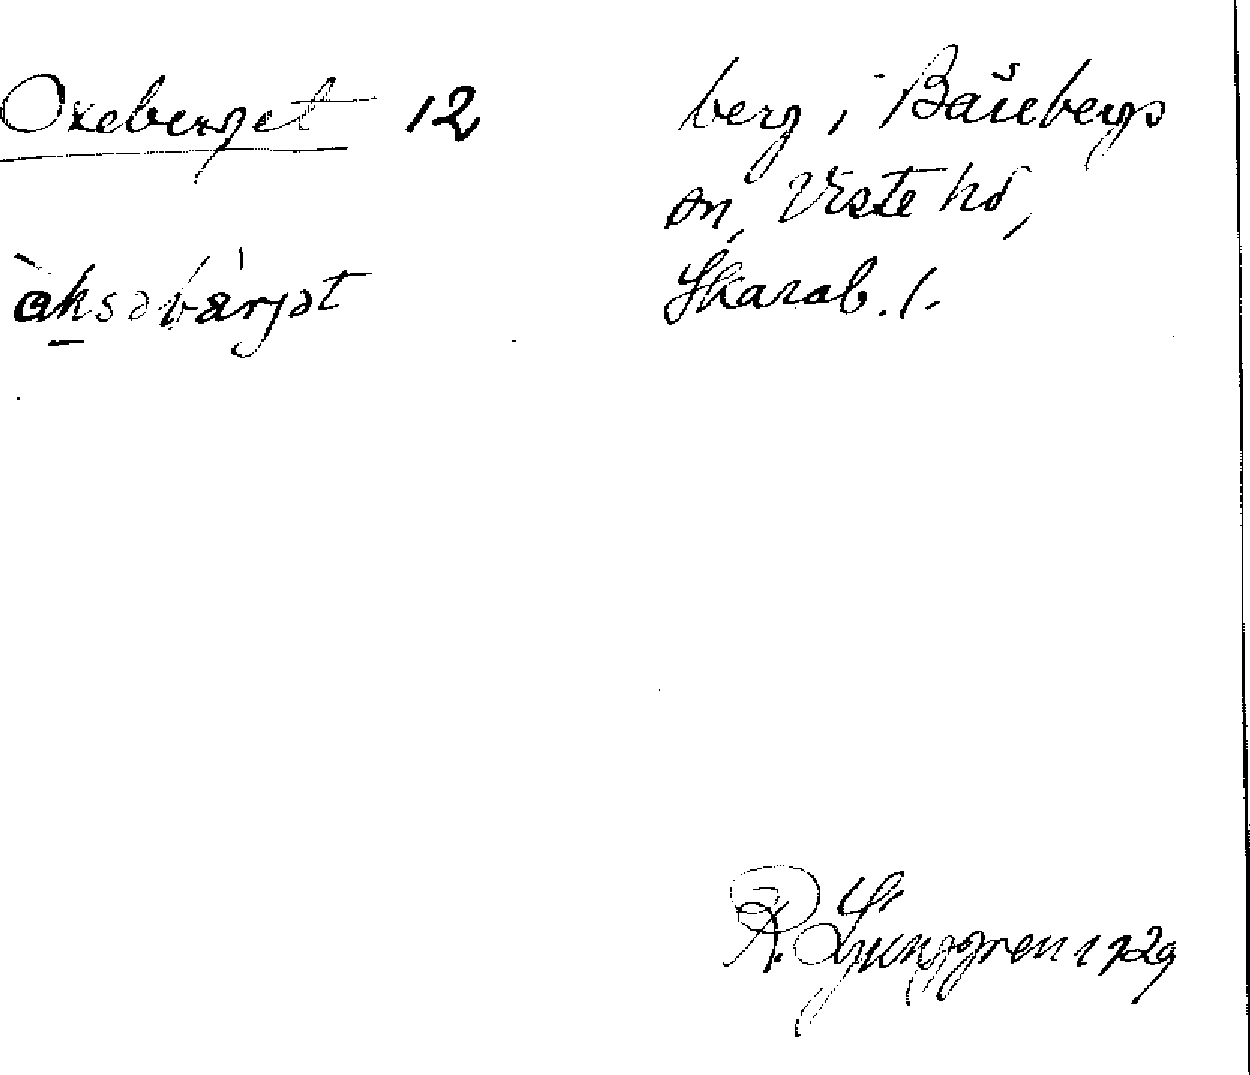 Oxeberget 12
berg i Bårebergs
sn, Viste hd,
Skarab. l.
R. Ljunggren 1929